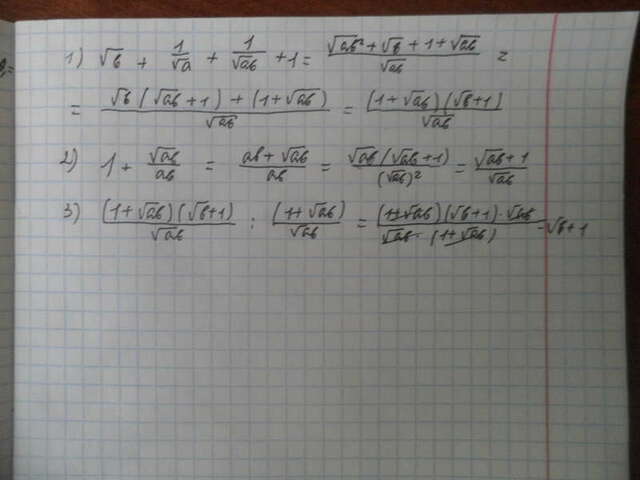 1) √b + 1/√a + 1/√ab + 1 = (√ab² + √b + 1 + √ab)/√ab =
= (√b(√ab + 1) + (1 + √ab))/√ab = ((1 + √ab)(√b + 1))/√ab
2) 1 + √ab/ab = (ab + √ab)/ab = (√ab(√ab + 1))/(√ab)² = (√ab + 1)/√ab
3) ((1 + √ab)(√b + 1))/√ab : (1 + √ab)/√ab = ((1 + √ab)(√b + 1) · √ab)/(√ab · (1 + √ab)) = √b + 1